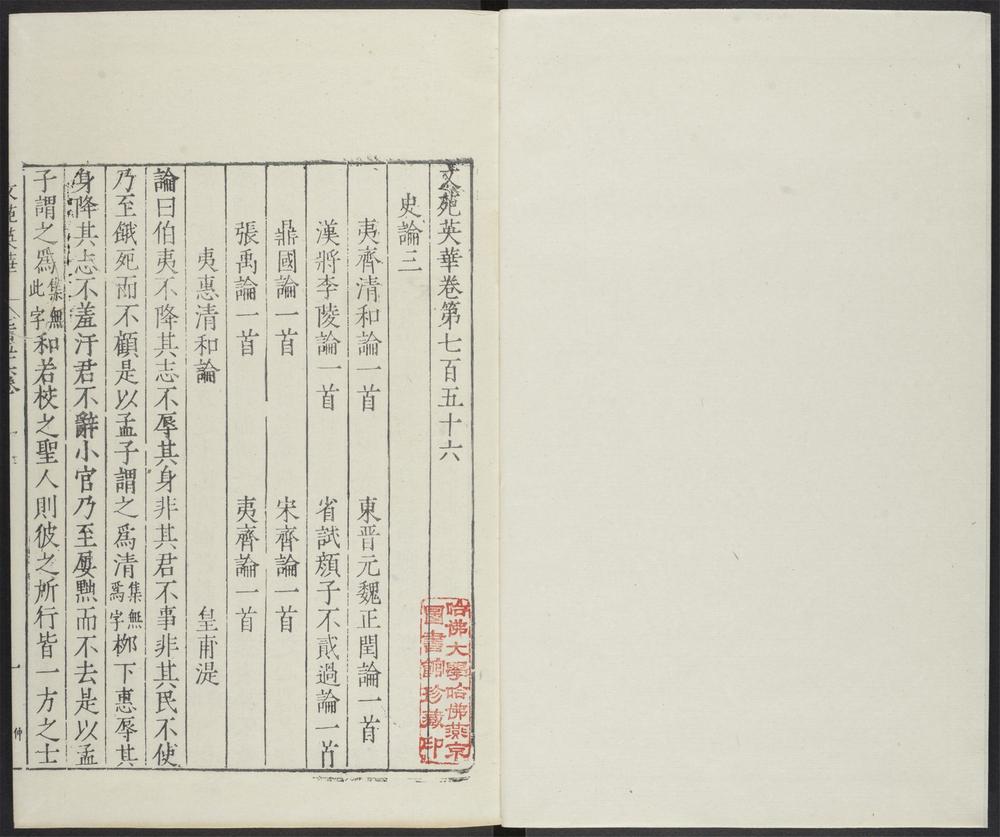 文苑英華卷第七百五十六
史論三
夷齊清和論一首 東晋元魏正閏論一首
漢將李陵論一首 省試顔子不貳過論一首
鼎國論一首 宋齊論一首
張禹論一首 夷齊論一首
夷惠清和論 皇甫湜
論曰伯夷不降其志不辱其身非其君不事非其民不使
乃至餓死而不顧是以孟子謂之爲清集無爲字栁下惠辱其
身降其志不羞汙君不辭小官乃至屢黜而不去是以孟
子謂之爲集無此字和若校之聖人則彼之所行皆一方之士
文苑英華
一
仲
哈佛大學哈佛燕京
圖書館珍藏印